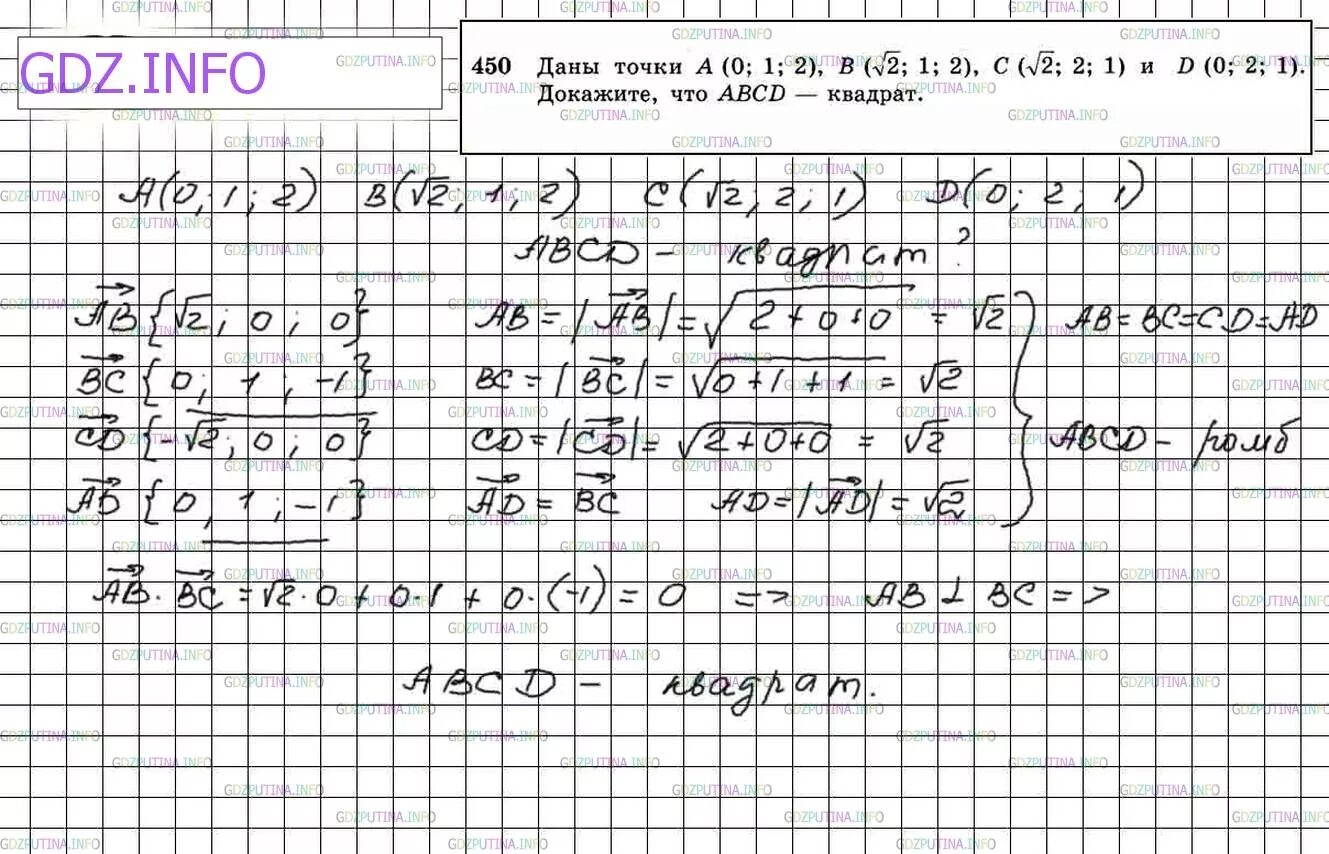 GDZ.INFO
450 Даны точки A (0; 1; 2), B (√2; 1; 2), C (√2; 2; 1) и D (0; 2; 1).
Докажите, что ABCD — квадрат.
A(0; 1; 2) B(√2; 1; 2) C(√2; 2; 1) D(0; 2; 1)
ABCD – квадрат?
AB{√2; 0; 0} AB = |AB| = √2+0+0 = √2 AB = BC = CD = AD
BC{0; 1; -1} BC = |BC| = √0+1+1 = √2
CD{-√2; 0; 0} CD = |CD| = √2+0+0 = √2 ABCD – ромб
AD{0, 1; -1} AD = BC AD = |AD| = √2
AB · BC = √2·0 + 0·1 + 0·(-1) = 0 => AB ⊥ BC =>
ABCD – квадрат.
GDZPUTINA.INFO